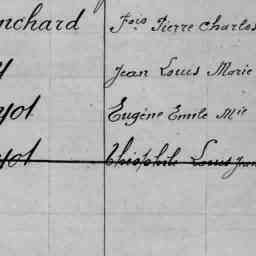 nchard Fois Pierre Charles
Jean Louis Marie
yot Eugène Emile Mie
yot Théophile Louis Jean